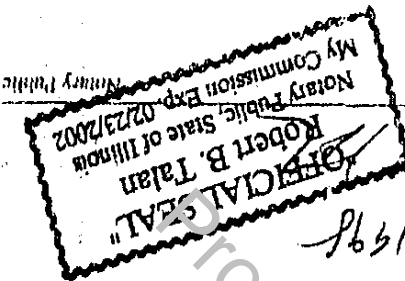 "OFFICIAL SEAL"
Robert B. Talan
Notary Public, State of Illinois
My Commission Exp. 02/23/2002
Notary Public
Pro